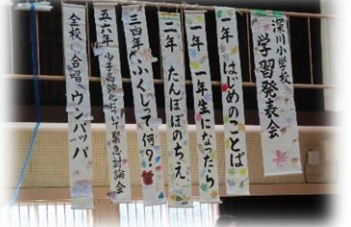 深川小学校
学習発表会
一年 はじめのことば
一年 一年生になったら
二年 たんぽぽのちえ
三四年 ふくしって、何？
五六年 少子高齢化について緊急討論会
全校 合唱 ウンパッパ